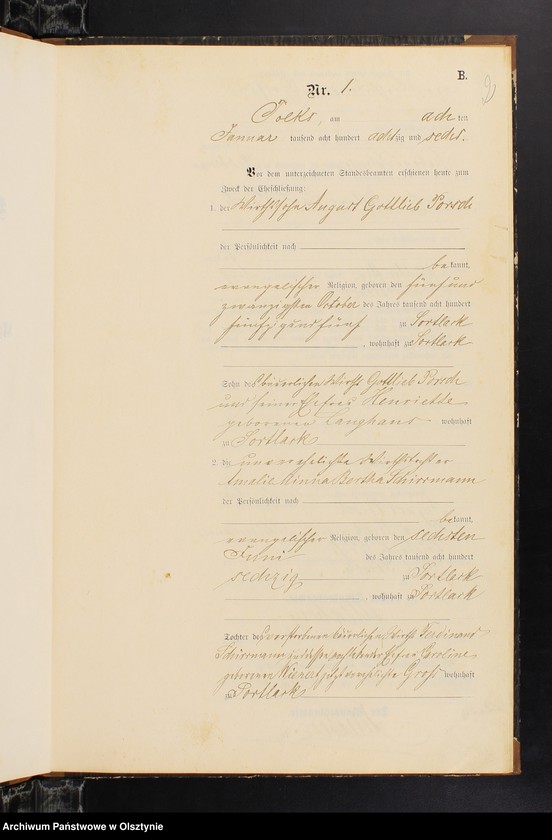 B.
2
Nr. 1.
Tolks, am ach ten
Januar tausend acht hundert achtzig und sechs.
Vor dem unterzeichneten Standesbeamten erschienen heute zum
Zweck der Eheschließung:
1. der Wirthssohn August Gottlieb Porsch
der Persönlichkeit nach
be kannt,
evangelischer Religion, geboren den fünf und
zwanzigsten October des Jahres tausend acht hundert
fünfzig und fünf zu Sortlack
, wohnhaft zu Sortlack
Sohn des bäuerlichen Wirths Gottlieb Porsch
und seiner Ehefrau Henriette
geborenen Langhans wohnhaft
zu Sortlack
2. die unverehelichte Wirthstochter
Amalie Minna Bertha Schirrmann
der Persönlichkeit nach
be kannt,
evangelischer Religion, geboren den sechsten
Juni des Jahres tausend acht hundert
sechzig zu Sortlack
, wohnhaft zu Sortlack
Tochter des verstorbenen bäuerlichen Wirths Ferdinand
Schirrmann und dessen Ehefrau Caroline
geborenen Wienert jetzt verehelichte Groß wohnhaft
zu Sortlack
Archiwum Państwowe w Olsztynie